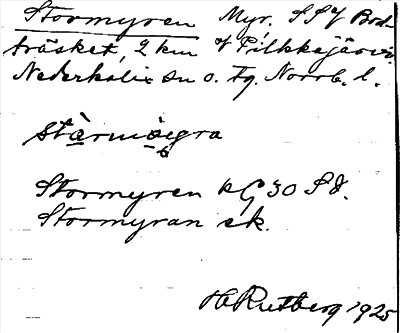 Stormyren Myr, SSV Bod-
träsket, 2 km Pilkkejärvi
Nederkalix sn o. tg. Norrb. l.
stàrmỳgra
Stormyren kG 30 S8.
Stormyran ek.
H Rutberg 1925